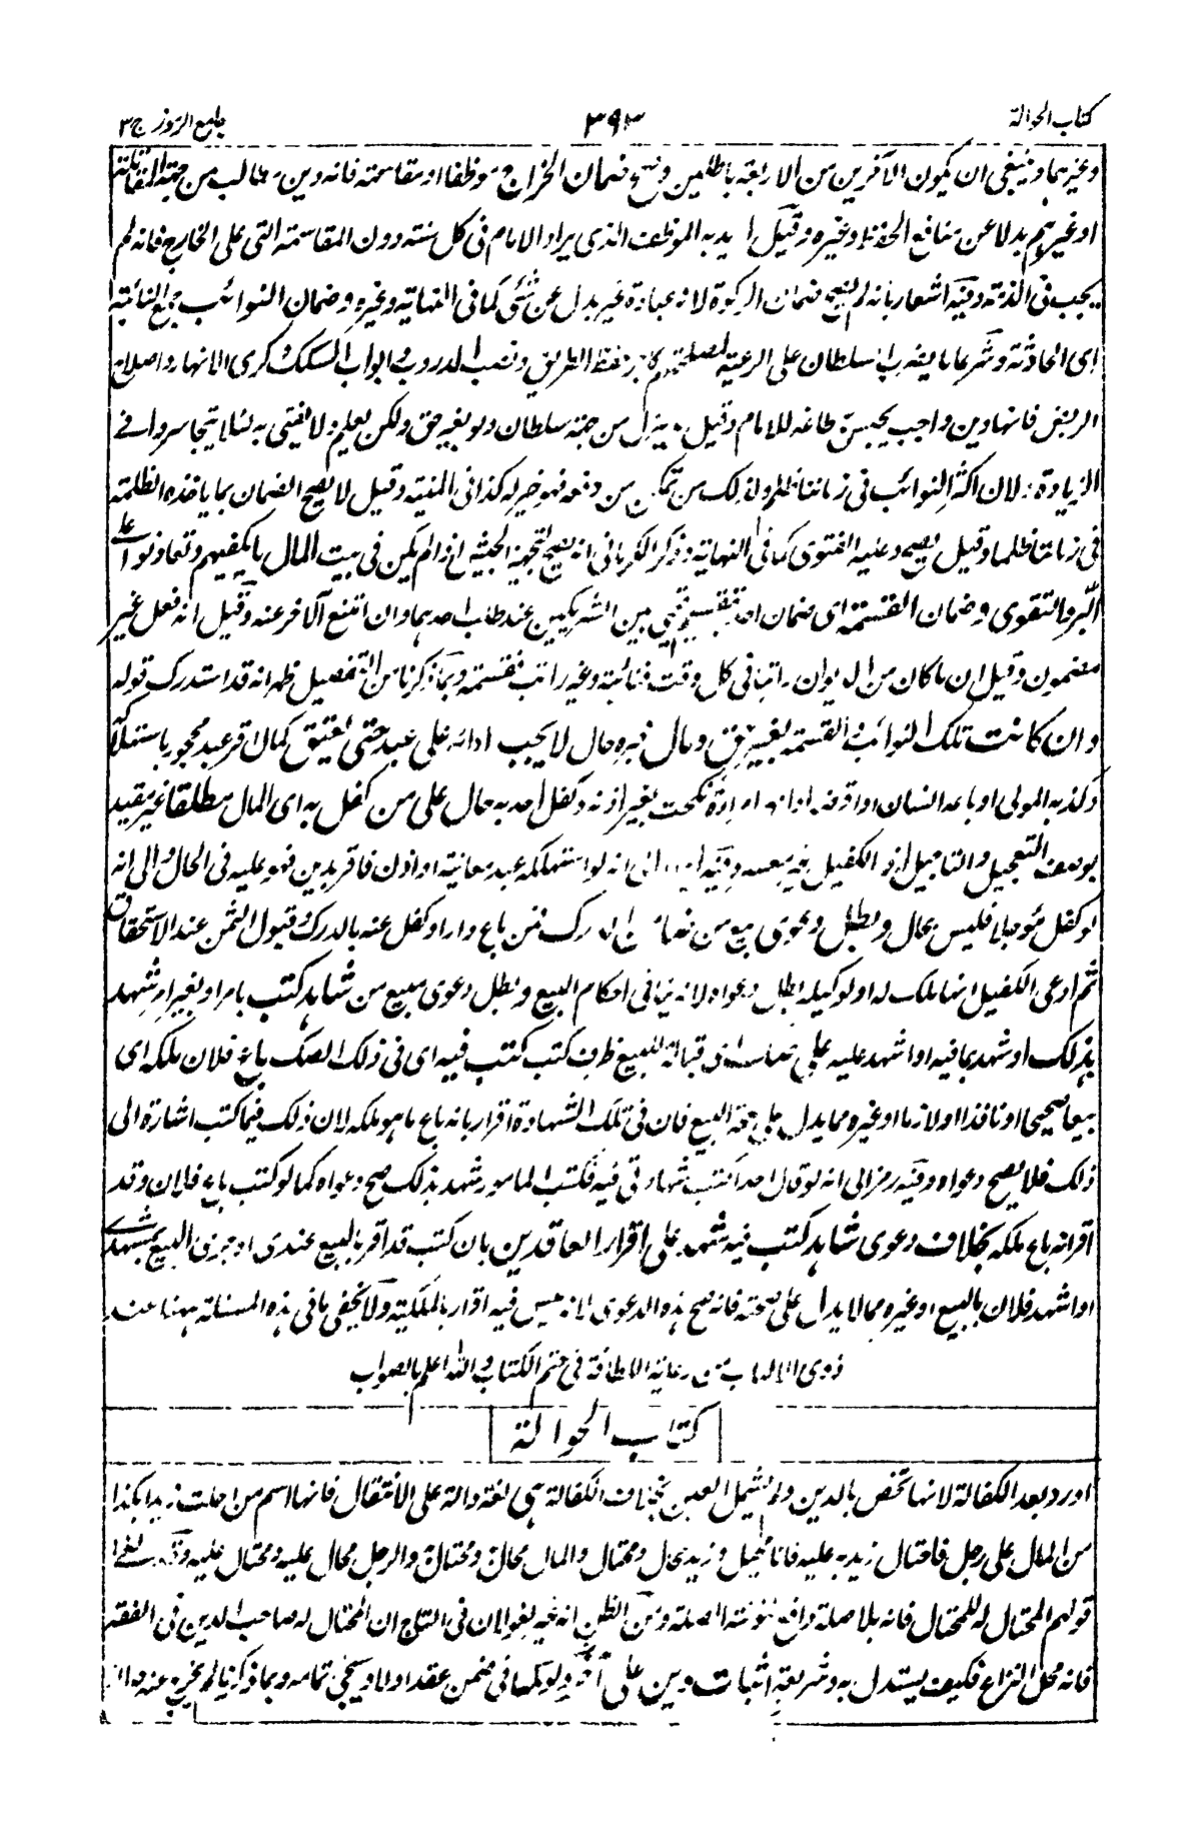 كتاب الحوالة
٣٩٣
جامع الرموز ج٣
وغيرهما وينبغى ان يكون الآخرين من الاربعة باطلين وصح ضمان الخراج موظفا او مقاسمة فانه دين مطالب من جهة المقاتلة
او غيرهم بدلا عن منافع الحفظ وغيره وقيل اريد به الموظف الذى يراه الامام فى كل سنة دون المقاسمة التى على الخارج فانه لم
يجب فى الذمة وفيه اشعار بانه لم يصح ضمان الزكوة لانه عبادة غير بدل عن شئ كما فى النهاية وغيره وضمان النوائب جمع النائبة
اى الحادثة وشرعا ما يضربه السلطان على الرعية لمصلحتهم كاجر حفظ الطريق ونصب الدروب وابواب السكك وكرى الانهار واصلاح
الربض فانها دين واجب يحبس طاعة للامام وقيل ما ينزل من جهة سلطان ولو بغير حق ولكن يعلم ولا يفتى به لئلا يتجاسروا فى
الزيادة لان اكثر النوائب فى زماننا بظلم ولذلك من تمكن من دفعه فهو خير له كذا فى المنية وقيل لا يصح الضمان بما ياخذه الظلمة
فى زماننا ظلما وقيل يصح وعليه الفتوى كما فى النهاية وذكر الكرمانى انه يصح لتجهيز الجيش اذا لم يكن فى بيت المال ما يكفيهم وتعاونوا على
البر والتقوى وضمان القسمة اى ضمان بين الشريكين عند طلب احدهما وان امتنع الآخر عنه وقيل انه فعل غير
مضمون وقيل ان ما كان من الديوان راتبا فى كل وقت فنائبة وغير راتب فقسمة وبما ذكرنا من التفصيل ظهر انه قد استدرك قوله
وان كانت تلك النوائب والقسمة بغير حق ومال غير حال لا يجب اداؤه على عبد حتى يعتق كمال اقر عبد محجور باستهلاكه
وكذبه المولى او باعه انسان او اقرضه او امراة نكحت بغير اذنه وكفل احد به حال على من كفل به اى المال مطلقا غير مقيد
بوصف التعجيل والتاجيل الكفيل غير وفيه الى انه لو استهلكه عبد معاينة او اذن فاقر بدين فهو عليه فى الحال والى انه
لو كفل مؤجلا فليس بحال وبطل دعوى بيع من ضمان الدرك فمن باع دارا وكفل عنه بالدرك قبول الثمن عند الاستحقاق
ثم ادعى الكفيل انها ملك له او لوكيله بطل دعواه لانه ينافى احكام البيع وبطل دعوى مبيع من شاهد كتب بامر او بغير امر شهد
بذلك او شهد بما فيه او اشهد عليه على قبالة للبيع ظرف كتب كتب فيه اى فى ذلك الصك باع فلان ملكه اى
بيعا صحيحا او نافذا او لازما او غيره مما يدل على صحة البيع فان فى تلك الشهادة اقرار بانه باع ما هو ملكه لان ذلك فيما كتب اشارة الى
ذلك فلا يصح دعواه وفيه رمز الى انه لو قال احد اكتب شهادتى فيه فكتب المامور شهد بذلك صح دعواه كما لو كتب باع فلان وقد
اقر انه باع ملكه بخلاف دعوى شاهد كتب فيه شهد على اقرار العاقدين بان كتب قد اقر بالبيع عندى او جرى البيع بمشهدى
او اشهد فلان بالبيع او غيره مما لا يدل على صحته فانه صح هذه الدعوى لانه ليس فيه اقرار بالملكية ولا يخفى ما فى هذه المسئلة ههنا عند
ذوى الالباب من رعاية اللطافة فى ختم الكتاب والله اعلم بالصواب
كتاب الحوالة
اورد بعد الكفالة لانها تختص بالدين ولم يشمل العين بخلاف الكفالة هى لغة دالة على الانتقال فانها اسم من احلت زيدا بكذا
من المال على رجل فاحتال زيد به عليه فانا محيل وزيد محال ومحتال والمال محال ومحتال والرجل محال عليه ومحتال عليه
قولهم المحتال له للمحتال فانه بلا صلة وافع مؤنة الصلة ومن الظن انه غير لغو لان فى التاج ان المحتال له صاحب الدين فى الفقه
فانه محل النزاع فكيف يستدل به وشريعة اثبات دين على آخر ولو حكما فى ضمن عقد اولا وسيجئ تمامه وبما ذكرنا لم يخرج عنه